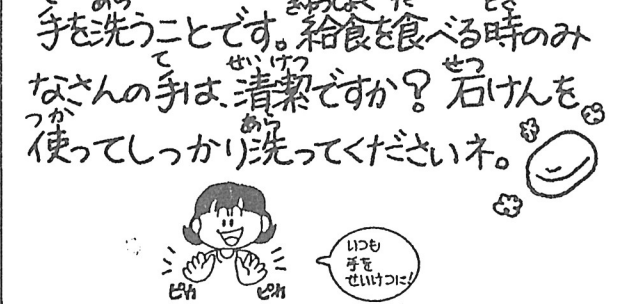 手を洗うことです。給食を食べる時のみ
なさんの手は、清潔ですか？石けんを
使ってしっかり洗ってくださいネ。
いつも
手を
せいけつに！
ピカ ピカ